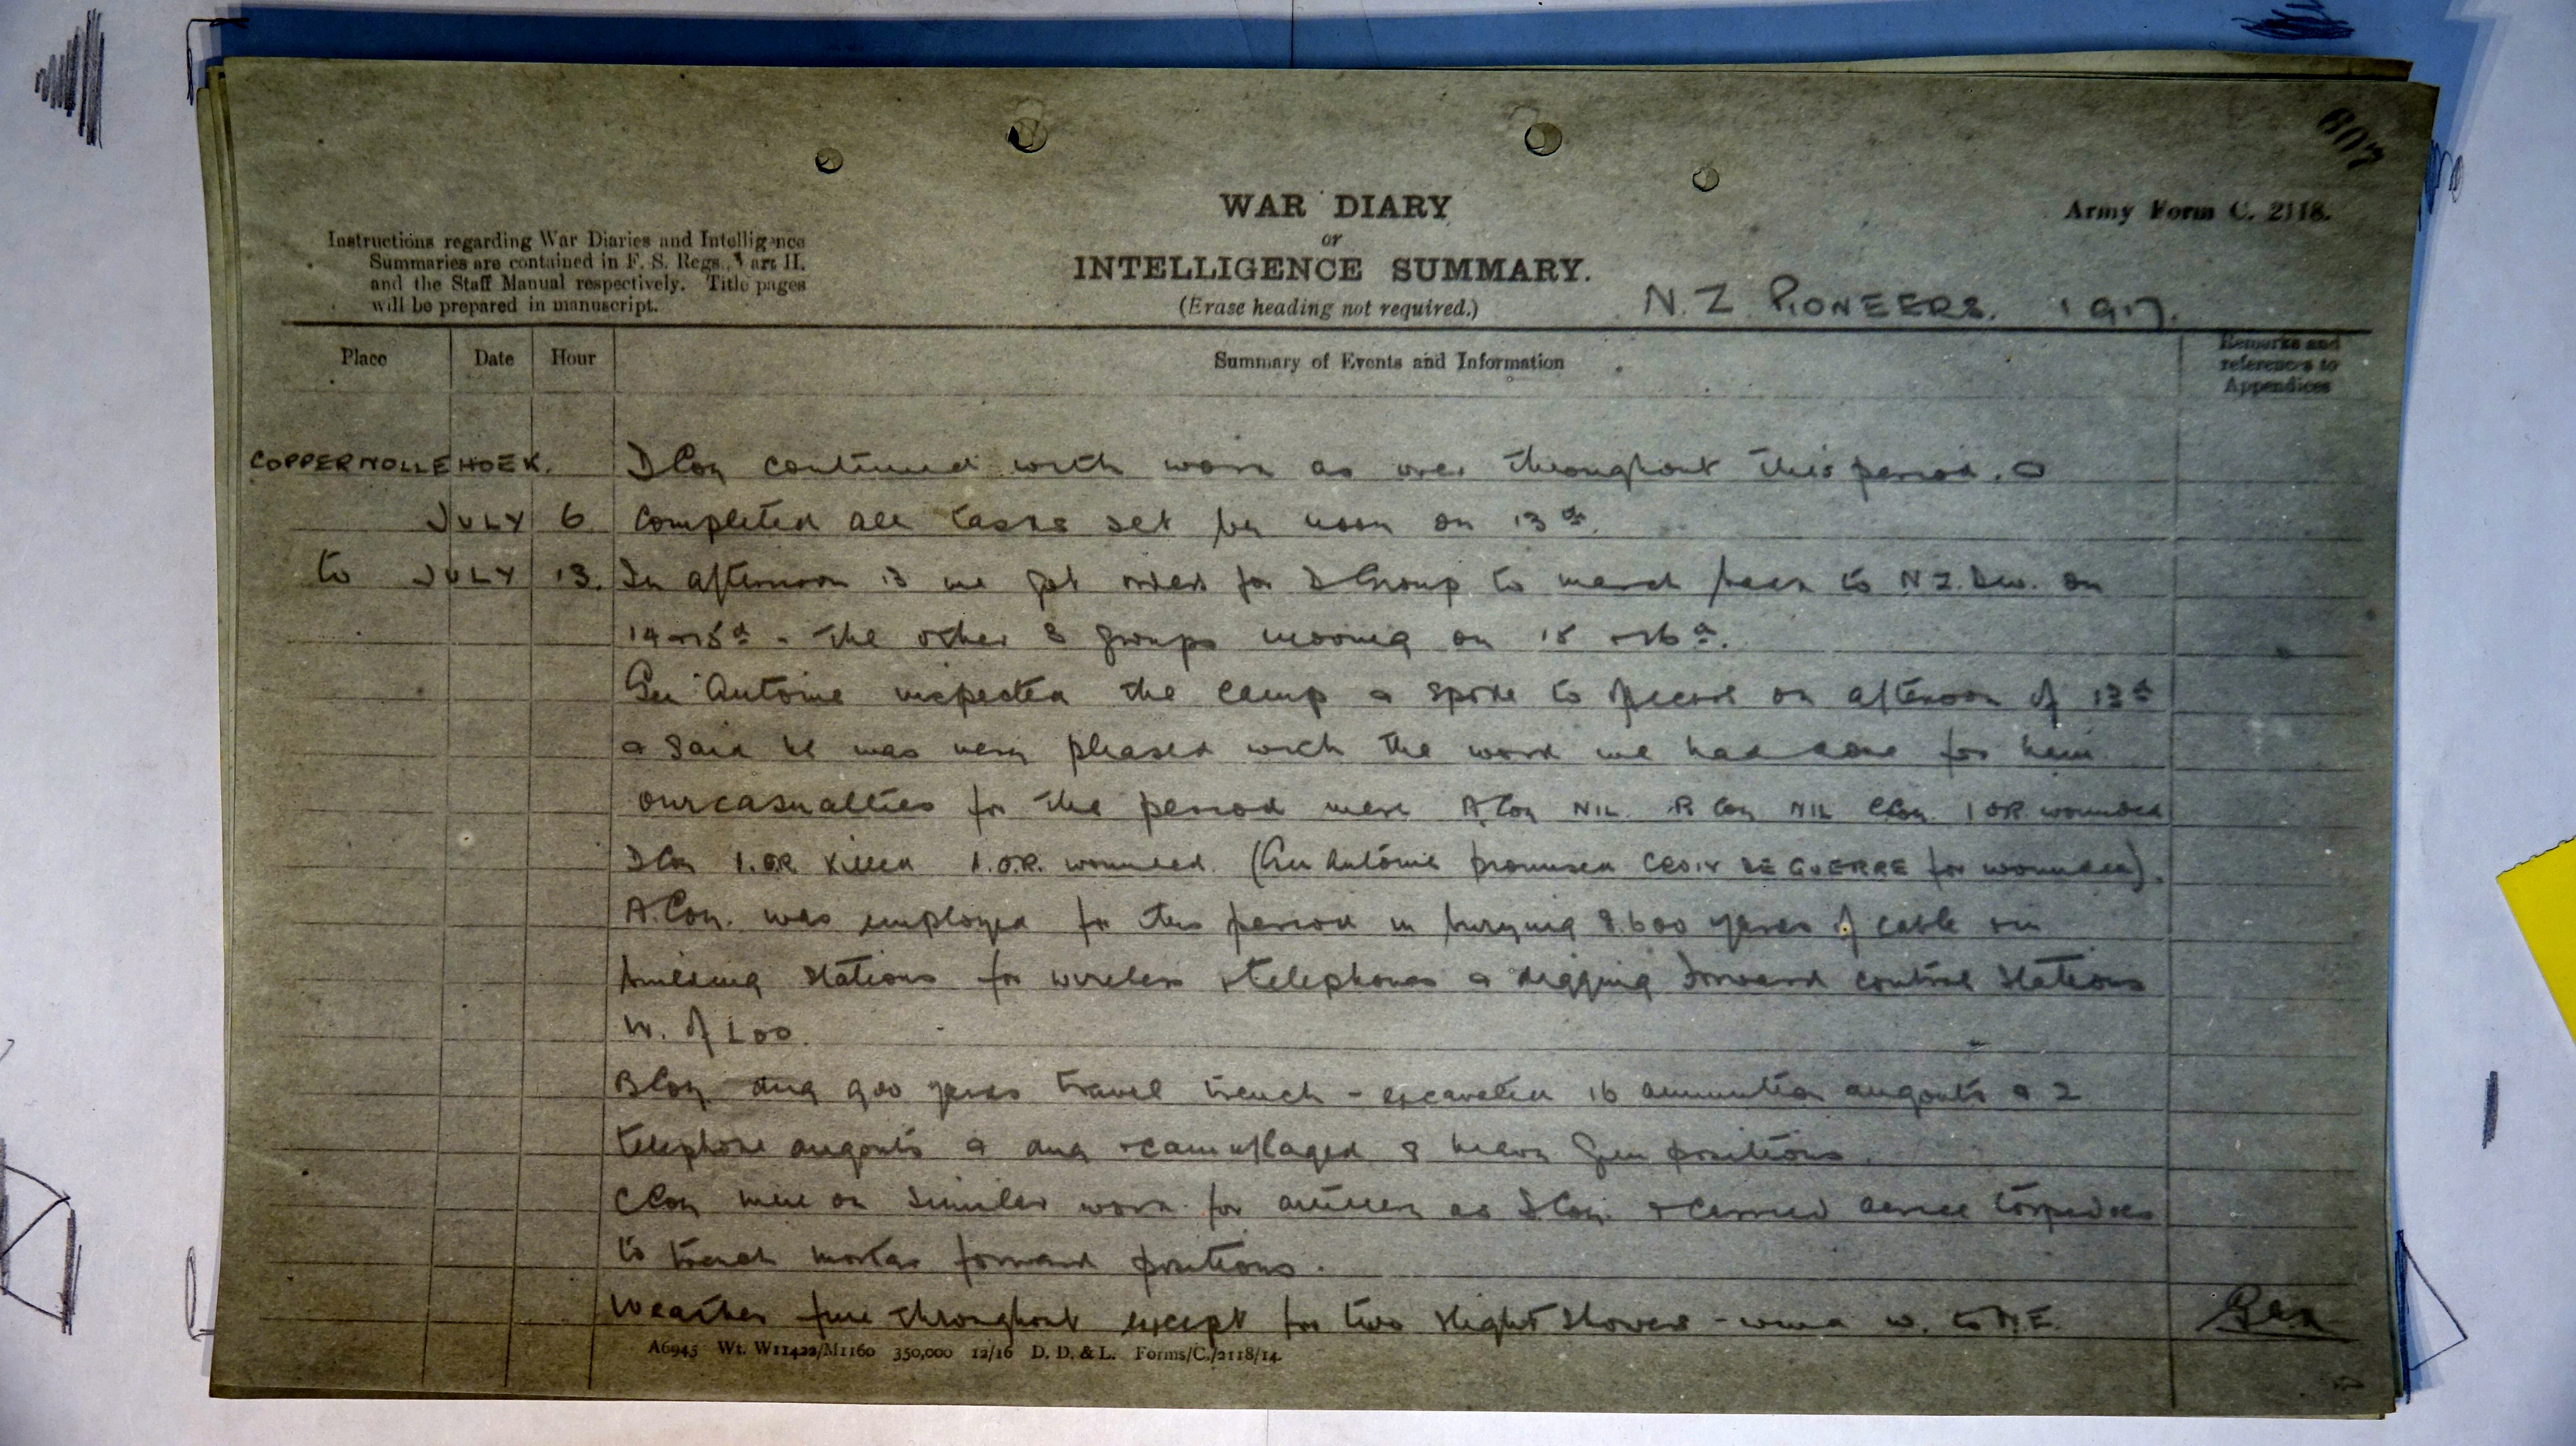 607
WAR DIARY
or
INTELLIGENCE SUMMARY.
(Erase heading not required.)
Army Form C. 2118.
Instructions regarding War Diaries and Intelligence
Summaries are contained in F. S. Regs., Part II.
and the Staff Manual respectively. Title pages
will be prepared in manuscript.
N.Z PIONEERS. 1917.
Place Date Hour Summary of Events and Information Remarks and references to Appendices
COPPERNOLLEHOEK. D Coy continued with work as over throughout this period. &
JULY 6 completed all tasks set by noon on 13th.
to JULY 13. In afternoon 13 we got orders for D Group to march back to N.Z. Div. on
14 & 15th - the other 3 groups moving on 15 & 16th.
Gen Antoine inspected the camp & spoke to on afternoon of 13th
& said he was very pleased with the work we had done for him
our casualties for the period were A Coy NIL. B Coy NIL C Coy. 1 OR wounded
D Coy 1.O.R. killed 1.O.R. wounded. (Gen Antoine promised CROIX DE GUERRE for wounded).
A. Coy. was employed for this period in burying 8600 yards of cable in
building stations for wireless & telephones & digging forward control stations
W. of LOO.
B Coy dug 900 yards travel trench - excavated 16 ammunition dugouts & 2
telephone dugouts & dug & camouflaged 8 heavy gun positions.
C Coy were on similar work for artillery as D. Coy. & carried aerial torpedoes
to trench mortar forward positions.
Weather fine throughout except for two slight showers - wind W. to N.E.
A6945 Wt. W11422/M1160 350,000 12/16 D. D. & L. Forms/C./2118/14.